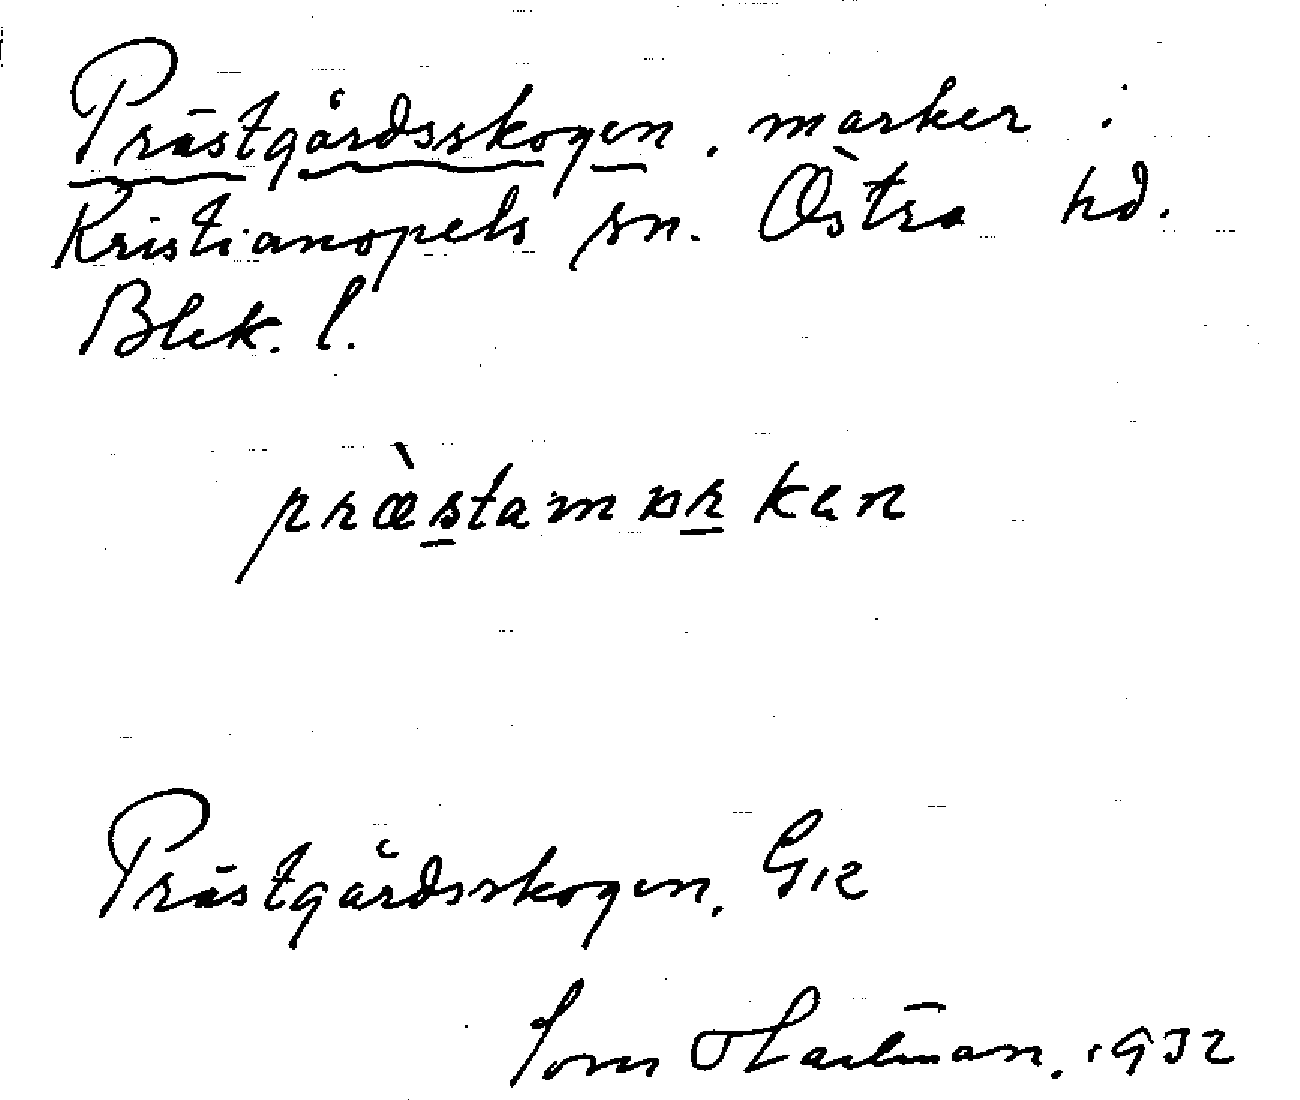 Prästgårdsskogen. marker i
Kristianopels sn. Östra hd.
Blek. l.
præ̀stamarken
Prästgårdsskogen. G12
Hartman. 1932